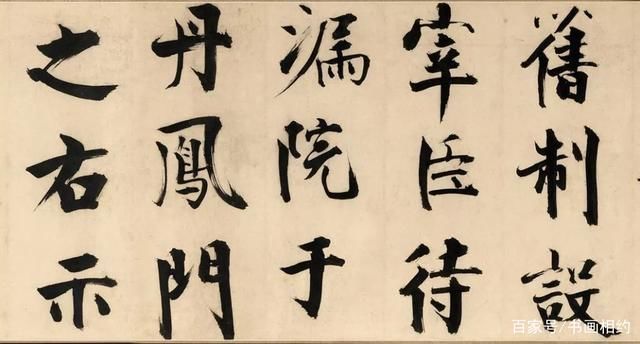 舊制設
宰臣待
漏院于
丹鳳門
之右示
百家号/书画相约